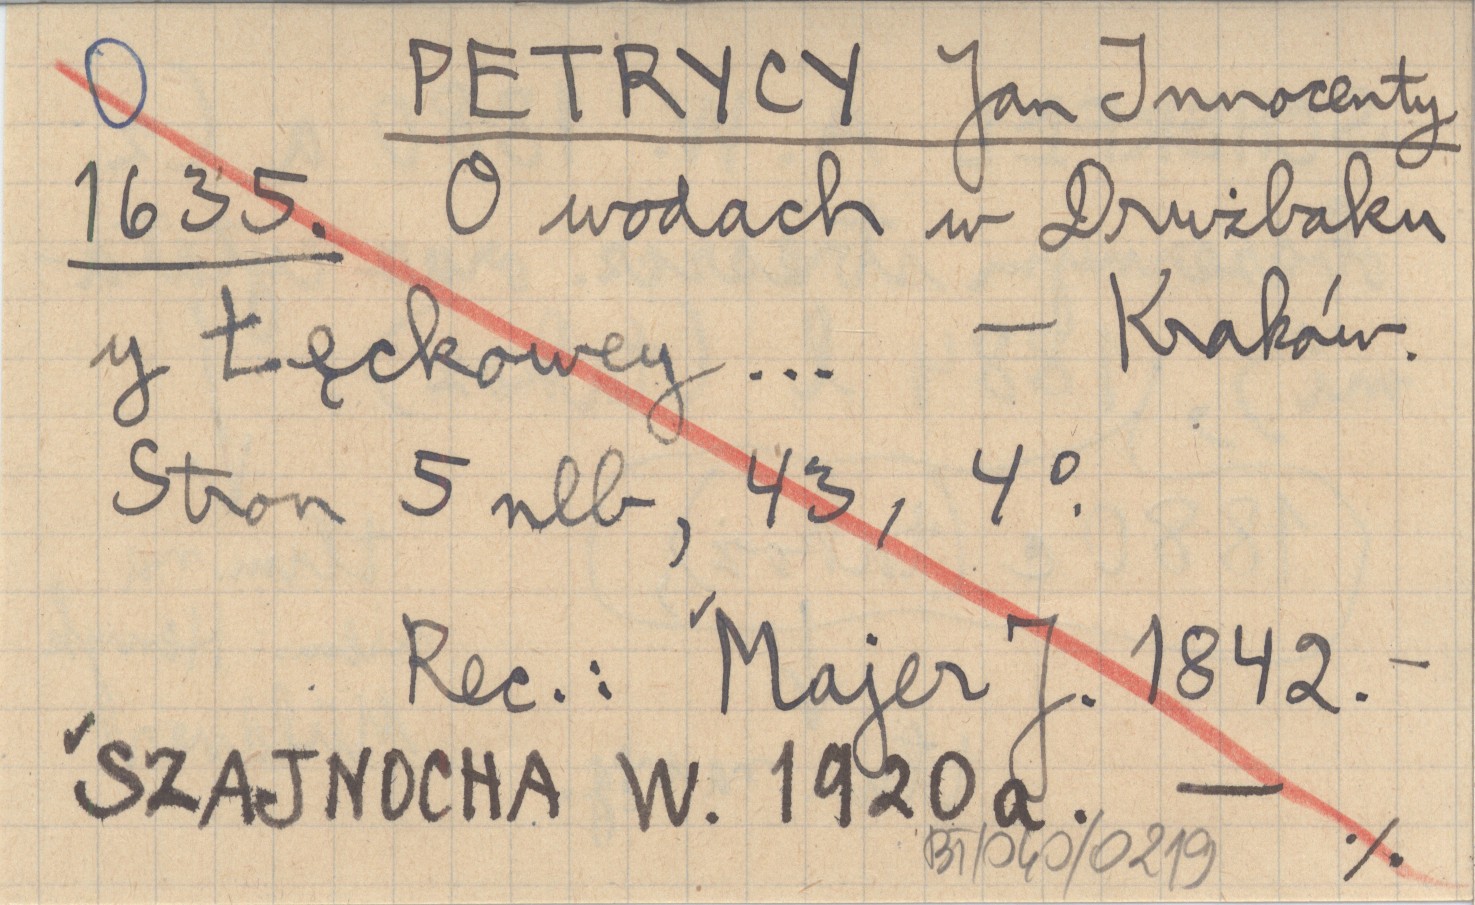 PETRYCY Jan Innocenty
1635. O wodach w Drużbaku
y Łęckowey ... — Kraków.
Stron 5 nlb, 43, 4°.
Rec.: Majer J. 1842. –
SZAJNOCHA W. 1920a. — ./.
BT/040/0219